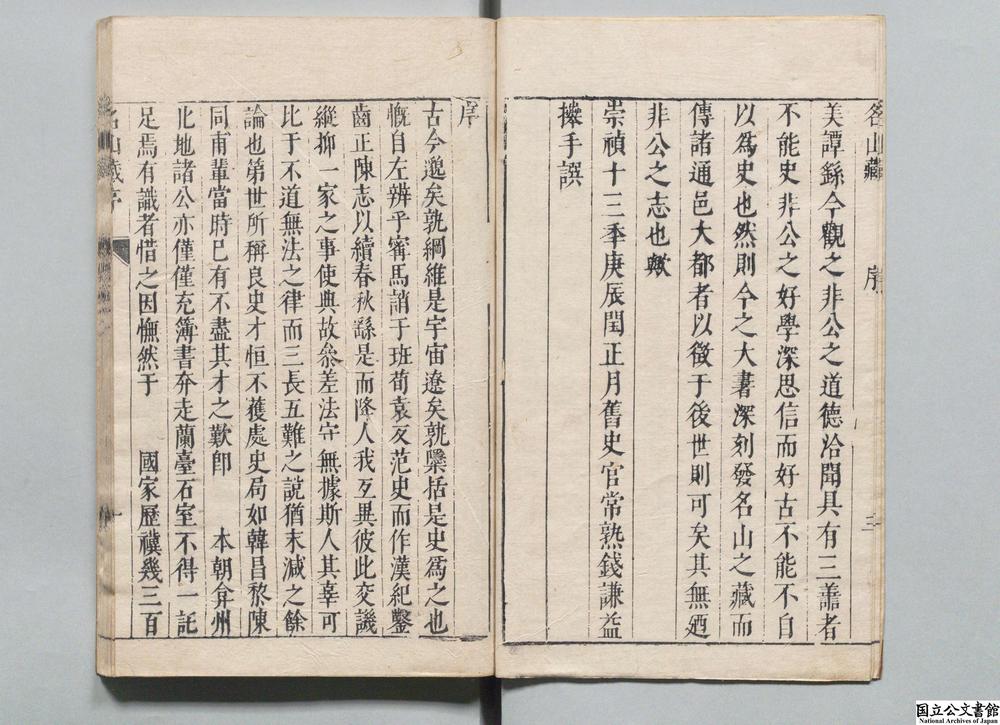 名山藏 序 三
美譚繇今觀之非公之道德洽聞具有三善者
不能史非公之好學深思信而好古不能不自
以爲史也然則今之大書深刻發名山之藏而
傳諸通邑大都者以徵于後世則可矣其無廼
非公之志也歟
崇禎十三季庚辰閏正月舊史官常熟錢謙益
撡手譔
序
古今邈矣孰綱維是宇宙遼矣孰櫽括是史爲之也
慨自左辨乎寗馬誚于班荀袁反范史而作漢紀鑿
齒正陳志以續春秋繇是而降人我互異彼此交譏
縱抑一家之事使典故叅差法守無據斯人其辜可
比于不道無法之律而三長五難之說猶末減之餘
論也第世所稱良史才恒不獲處史局如韓昌黎陳
同甫輩當時已有不盡其才之歎卽 本朝弇州
北地諸公亦僅僅充簿書奔走蘭臺石室不得一託
足焉有識者惜之因憮然于 國家歷禩幾三百
名山藏序 一
国立公文書館
National Archives of Japan